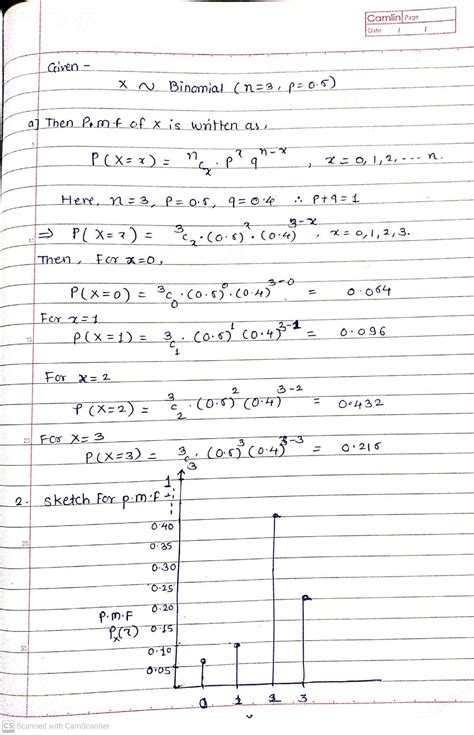 Camlin Page
Date / /
Given -
X ~ Binomial (n=3, p=0.5)
a] Then P.m.f of X is written as,
P(X=x) = ⁿCₓ · pˣ qⁿ⁻ˣ , x=0,1,2,---n.
Here, n=3, p=0.5, q=0.4 ∴ p+q=1
⇒ P(X=x) = ³Cₓ·(0.5)ˣ·(0.4)³⁻ˣ, x=0,1,2,3.
Then, For x=0,
P(X=0) = ³C₀·(0.5)⁰·(0.4)³⁻⁰ = 0.064
For x=1
P(X=1) = ³C₁·(0.5)¹(0.4)³⁻¹ = 0.096
For x=2
P(X=2) = ³C₂·(0.5)²(0.4)³⁻² = 0.432
For X=3
P(X=3) = ³C₃·(0.5)³(0.4)³⁻³ = 0.216
2. Sketch For p.m.f -
1
0.40
0.35
0.30
0.25
0.20
P.m.F
Pₓ(x) 0.15
0.10
0.05
0 1 2 3
CS Scanned with CamScanner